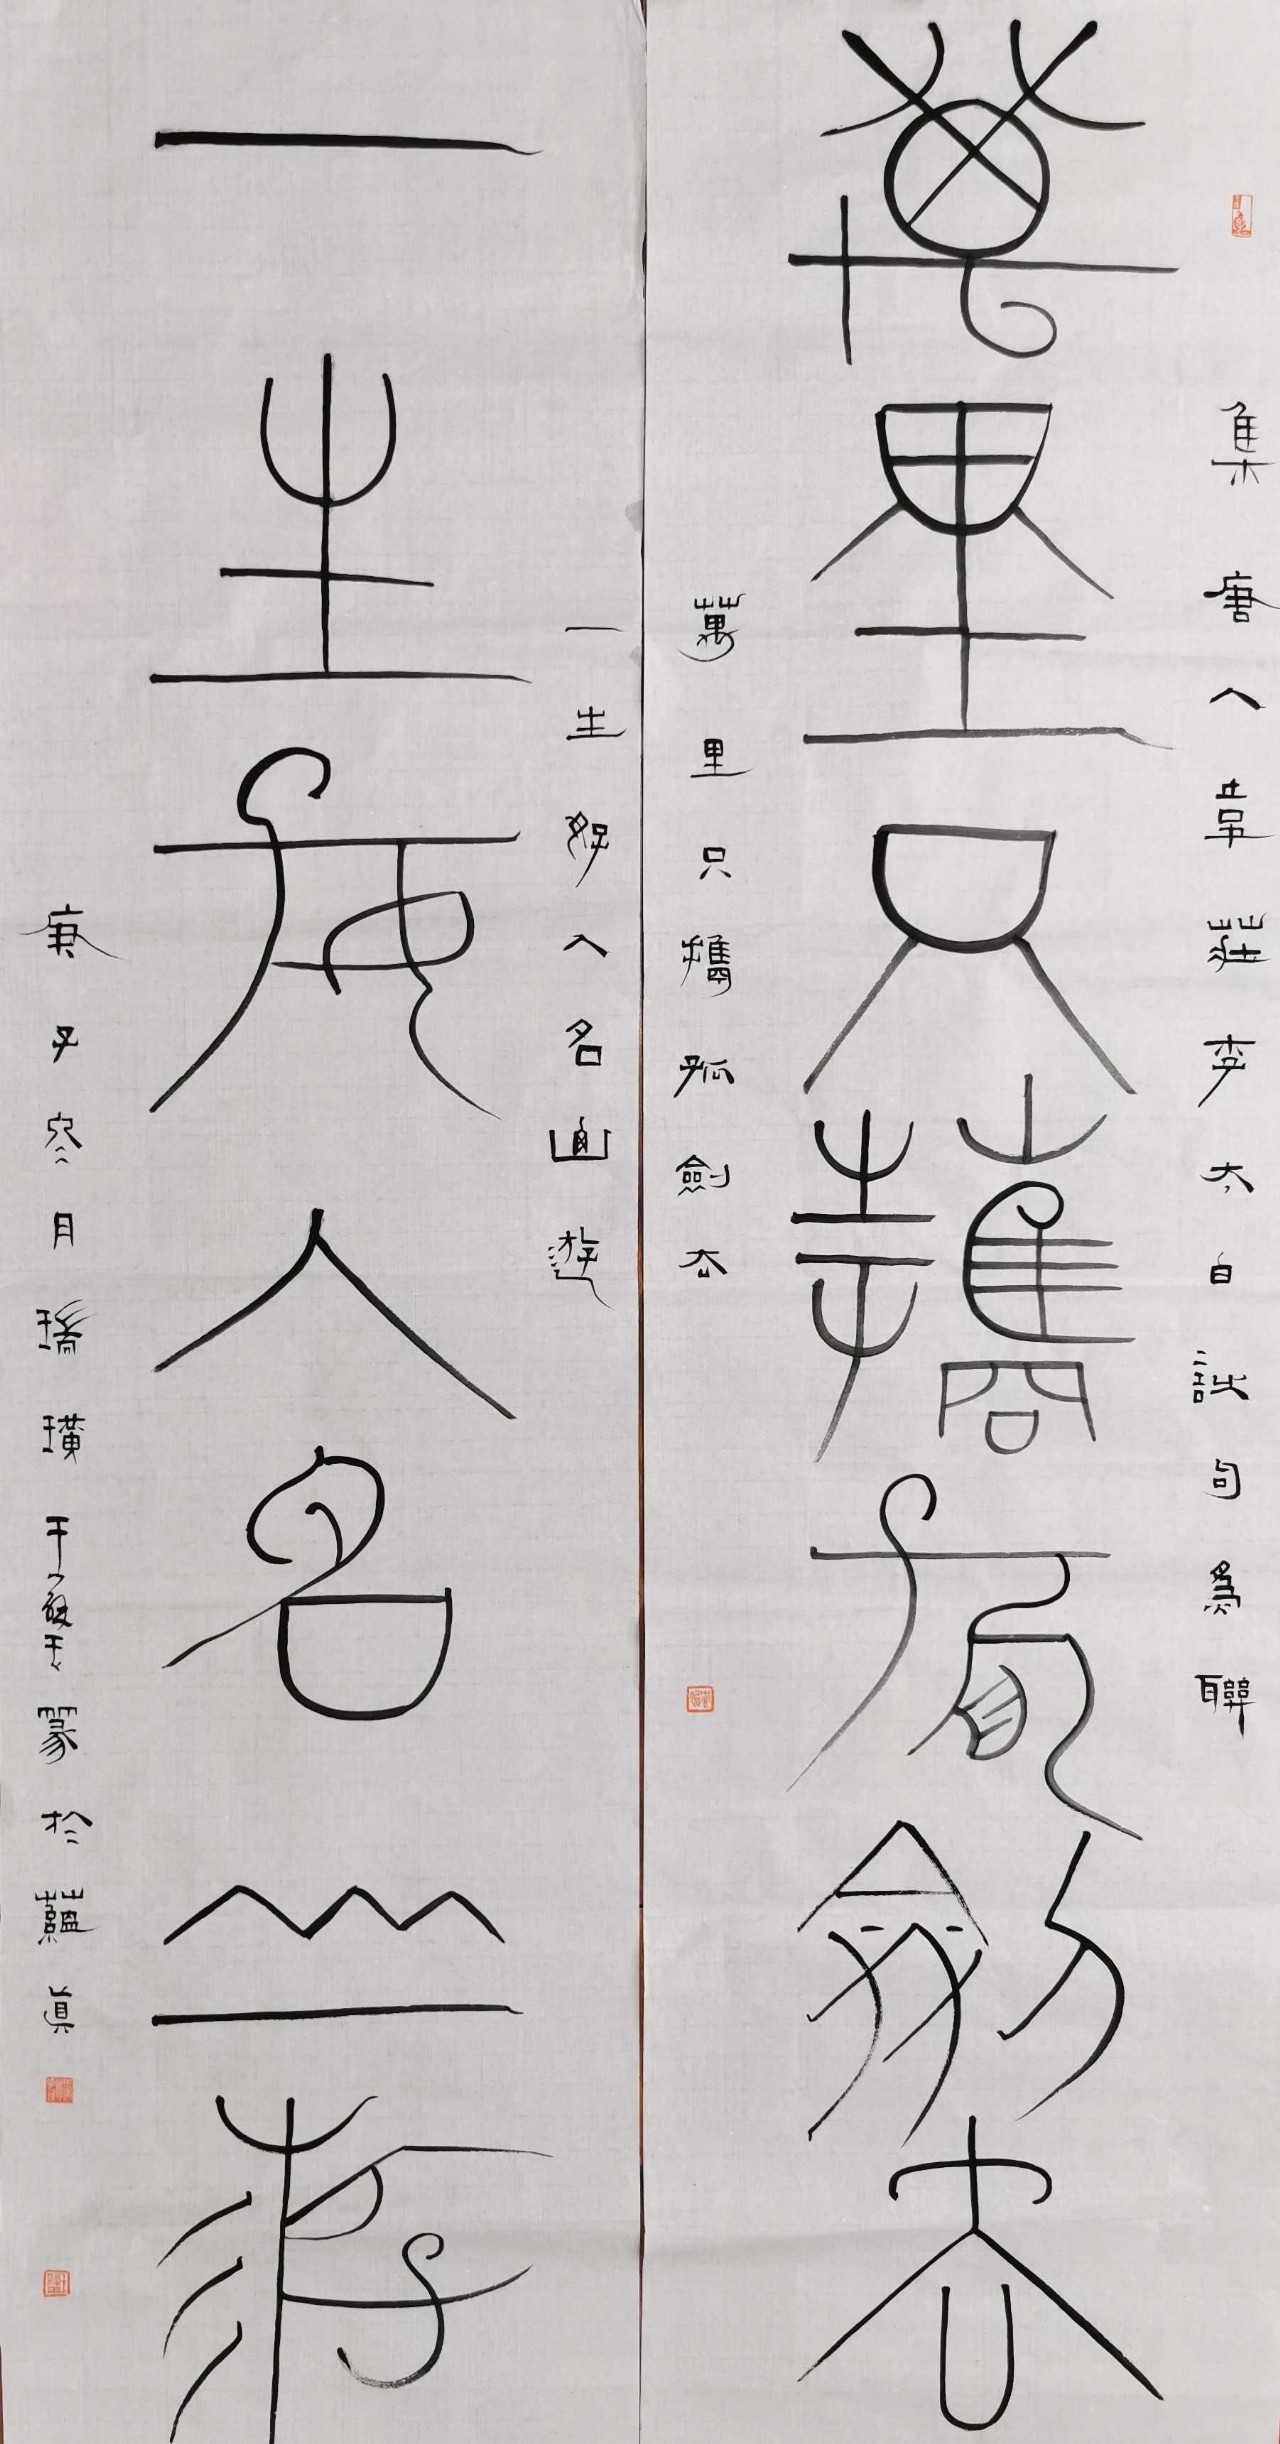 集唐人韋莊李太白詩句為聯
萬里只攜孤劍去
萬里只攜孤劍去
一生好入名山遊
一生好入名山游
庚子冬月璜篆於蘊真